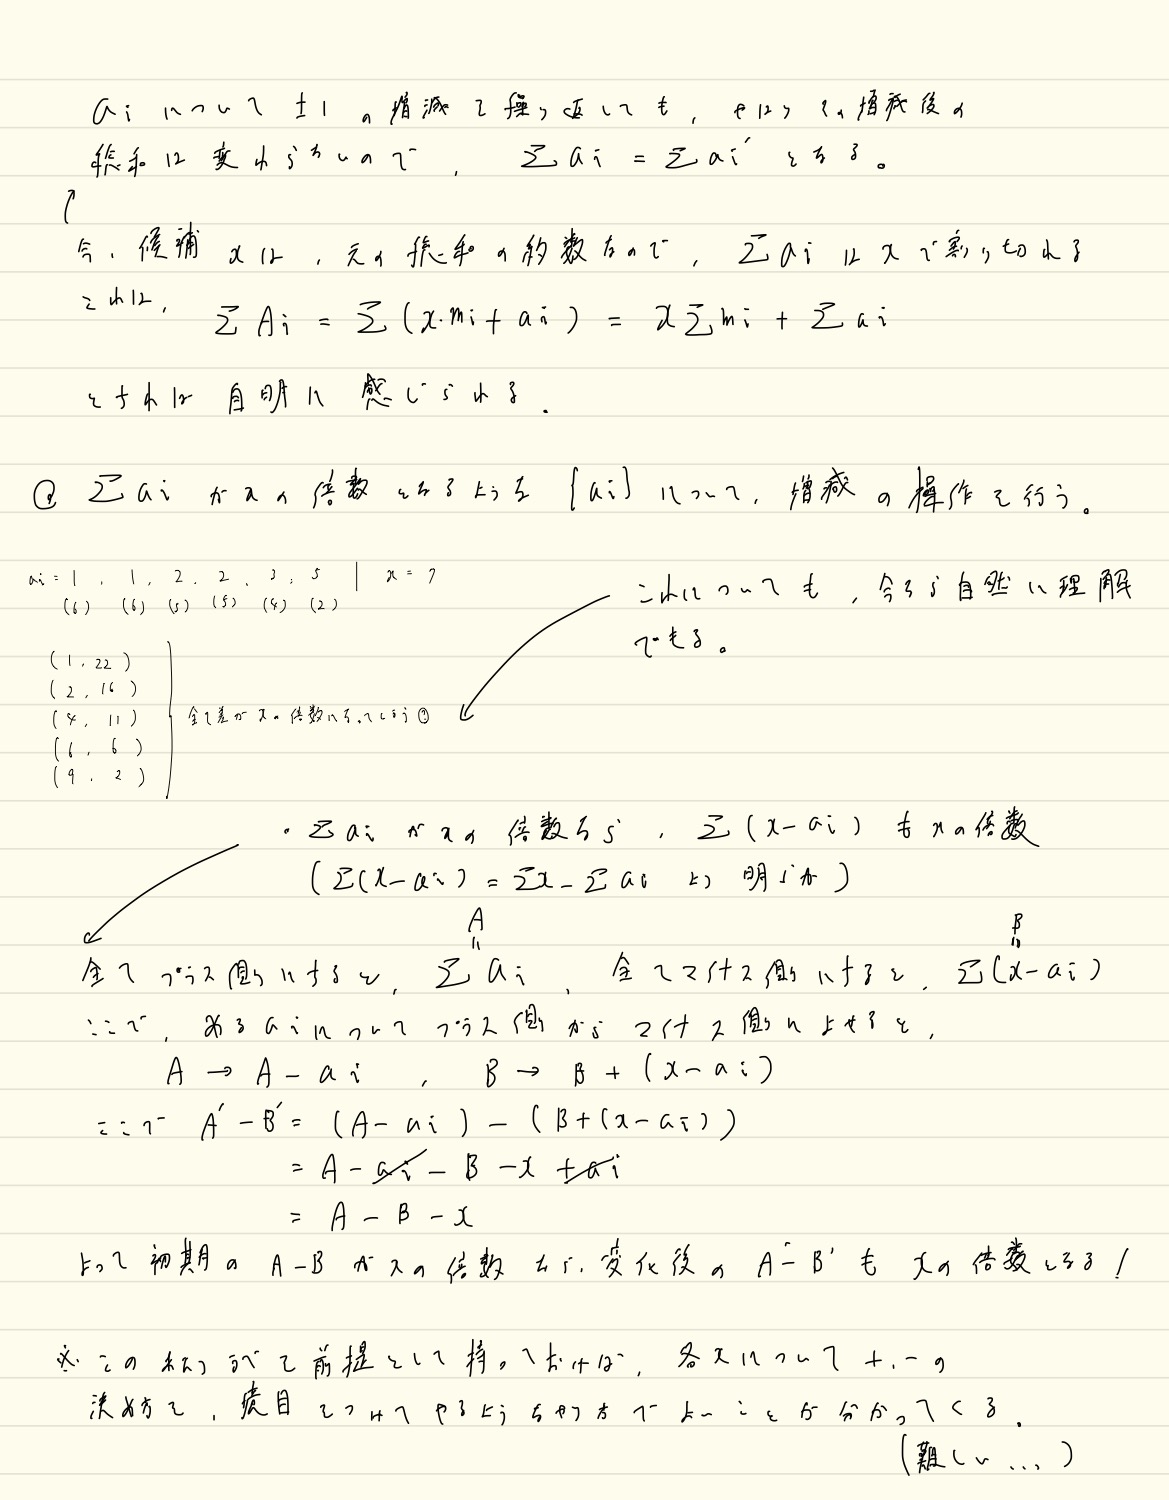 ai について ±1 の増減を繰り返しても, やはりその増減後の
総和は変わらないので, Σai = Σai' となる。
今, 候補 xは, 元の総和の約数なので, Σai は xで割り切れる
これは, ΣAi = Σ(x・mi + ai) = xΣmi + Σai
とすれば 自明に 感じられる.
@ Σai が xの 倍数 となるような {ai} について, 増減 の 操作を行う。
ai = 1 , 1 , 2 , 2 , 3 , 5 | x = 7
(6) (6) (5) (5) (4) (2)
これについても, 今なら自然に理解
できる。
(1, 22)
(2, 16)
(4, 11)
(6, 6)
(9, 2)
全て差が xの 倍数になってしまう
・Σai が xの 倍数なら, Σ(x-ai) も xの倍数
(Σ(x-ai) = Σx - Σai より 明らか)
A = B =
全て プラス側にすると, Σai , 全てマイナス側にすると, Σ(x-ai)
ここで, あるaiについて プラス側から マイナス側によせると,
A → A - ai , B → B + (x-ai)
ここで A' - B' = (A - ai) - (B + (x-ai))
= A - ai - B - x + ai
= A - B - x
よって 初期の A-B が xの倍数 なら, 変化後の A'-B' も xの倍数となる!
※ この 前提として持っておけば, 各xについて +,- の
決め方を, 境目をつけて やるようなやり方で よいことが分かってくる.
(難しい...)